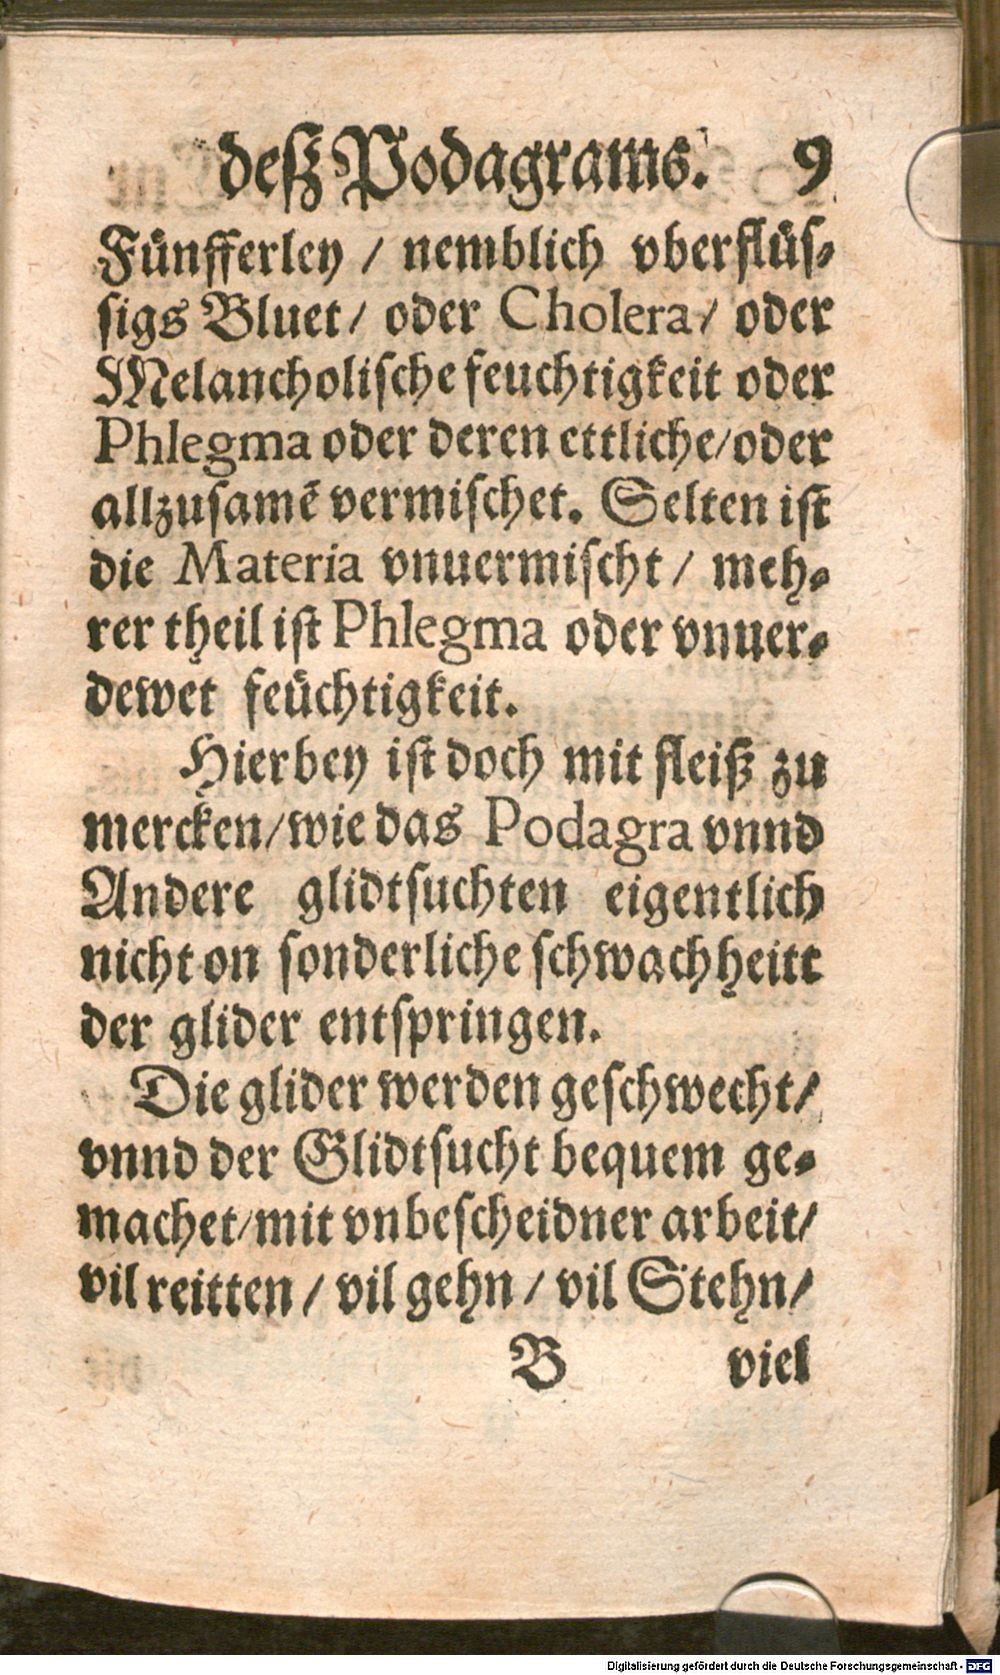 deſz Podagrams. 9
Fünfferley / nemblich vberflüſ⸗
ſigs Bluet / oder Cholera / oder
Melancholiſche feuchtigkeit oder
Phlegma oder deren ettliche / oder
allzuſamē vermiſchet. Selten iſt
die Materia vnuermiſcht / meh⸗
rer theil iſt Phlegma oder vnuer⸗
dewet feüchtigkeit.
Hierbey iſt doch mit fleiß zu
mercken / wie das Podagra vnnd
Andere glidtſuchten eigentlich
nicht on ſonderliche ſchwachheitt
der glider entſpringen.
Die glider werden geſchwecht /
vnnd der Glidtſucht bequem ge⸗
machet / mit vnbeſcheidner arbeit /
vil reitten / vil gehn / vil Stehn /
B viel
Digitalisierung gefördert durch die Deutsche Forschungsgemeinschaft - DFG